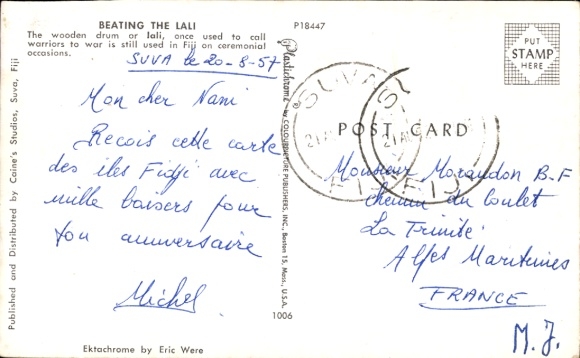 BEATING THE LALI
The wooden drum or lali, once used to call
warriors to war is still used in Fiji on ceremonial
occasions.
P18447
PUT
STAMP
HERE
SUVA le 20-8-57
Mon cher Nani
Reçois cette carte
des iles Fidji avec
mille baisers pour
ton anniversaire
Michel
Ektachrome by Eric Were
Published and Distributed by Caine's Studios, Suva, Fiji
Plastichrome
by COLOURPICTURE PUBLISHERS, INC., Boston 15, Mass., U.S.A.
1006
POST CARD
SUVA
FIJI
SU
FIJI
Monsieur Morandon B-F
chemin du
La Trinité
Alpes Maritimes
FRANCE
M. J.